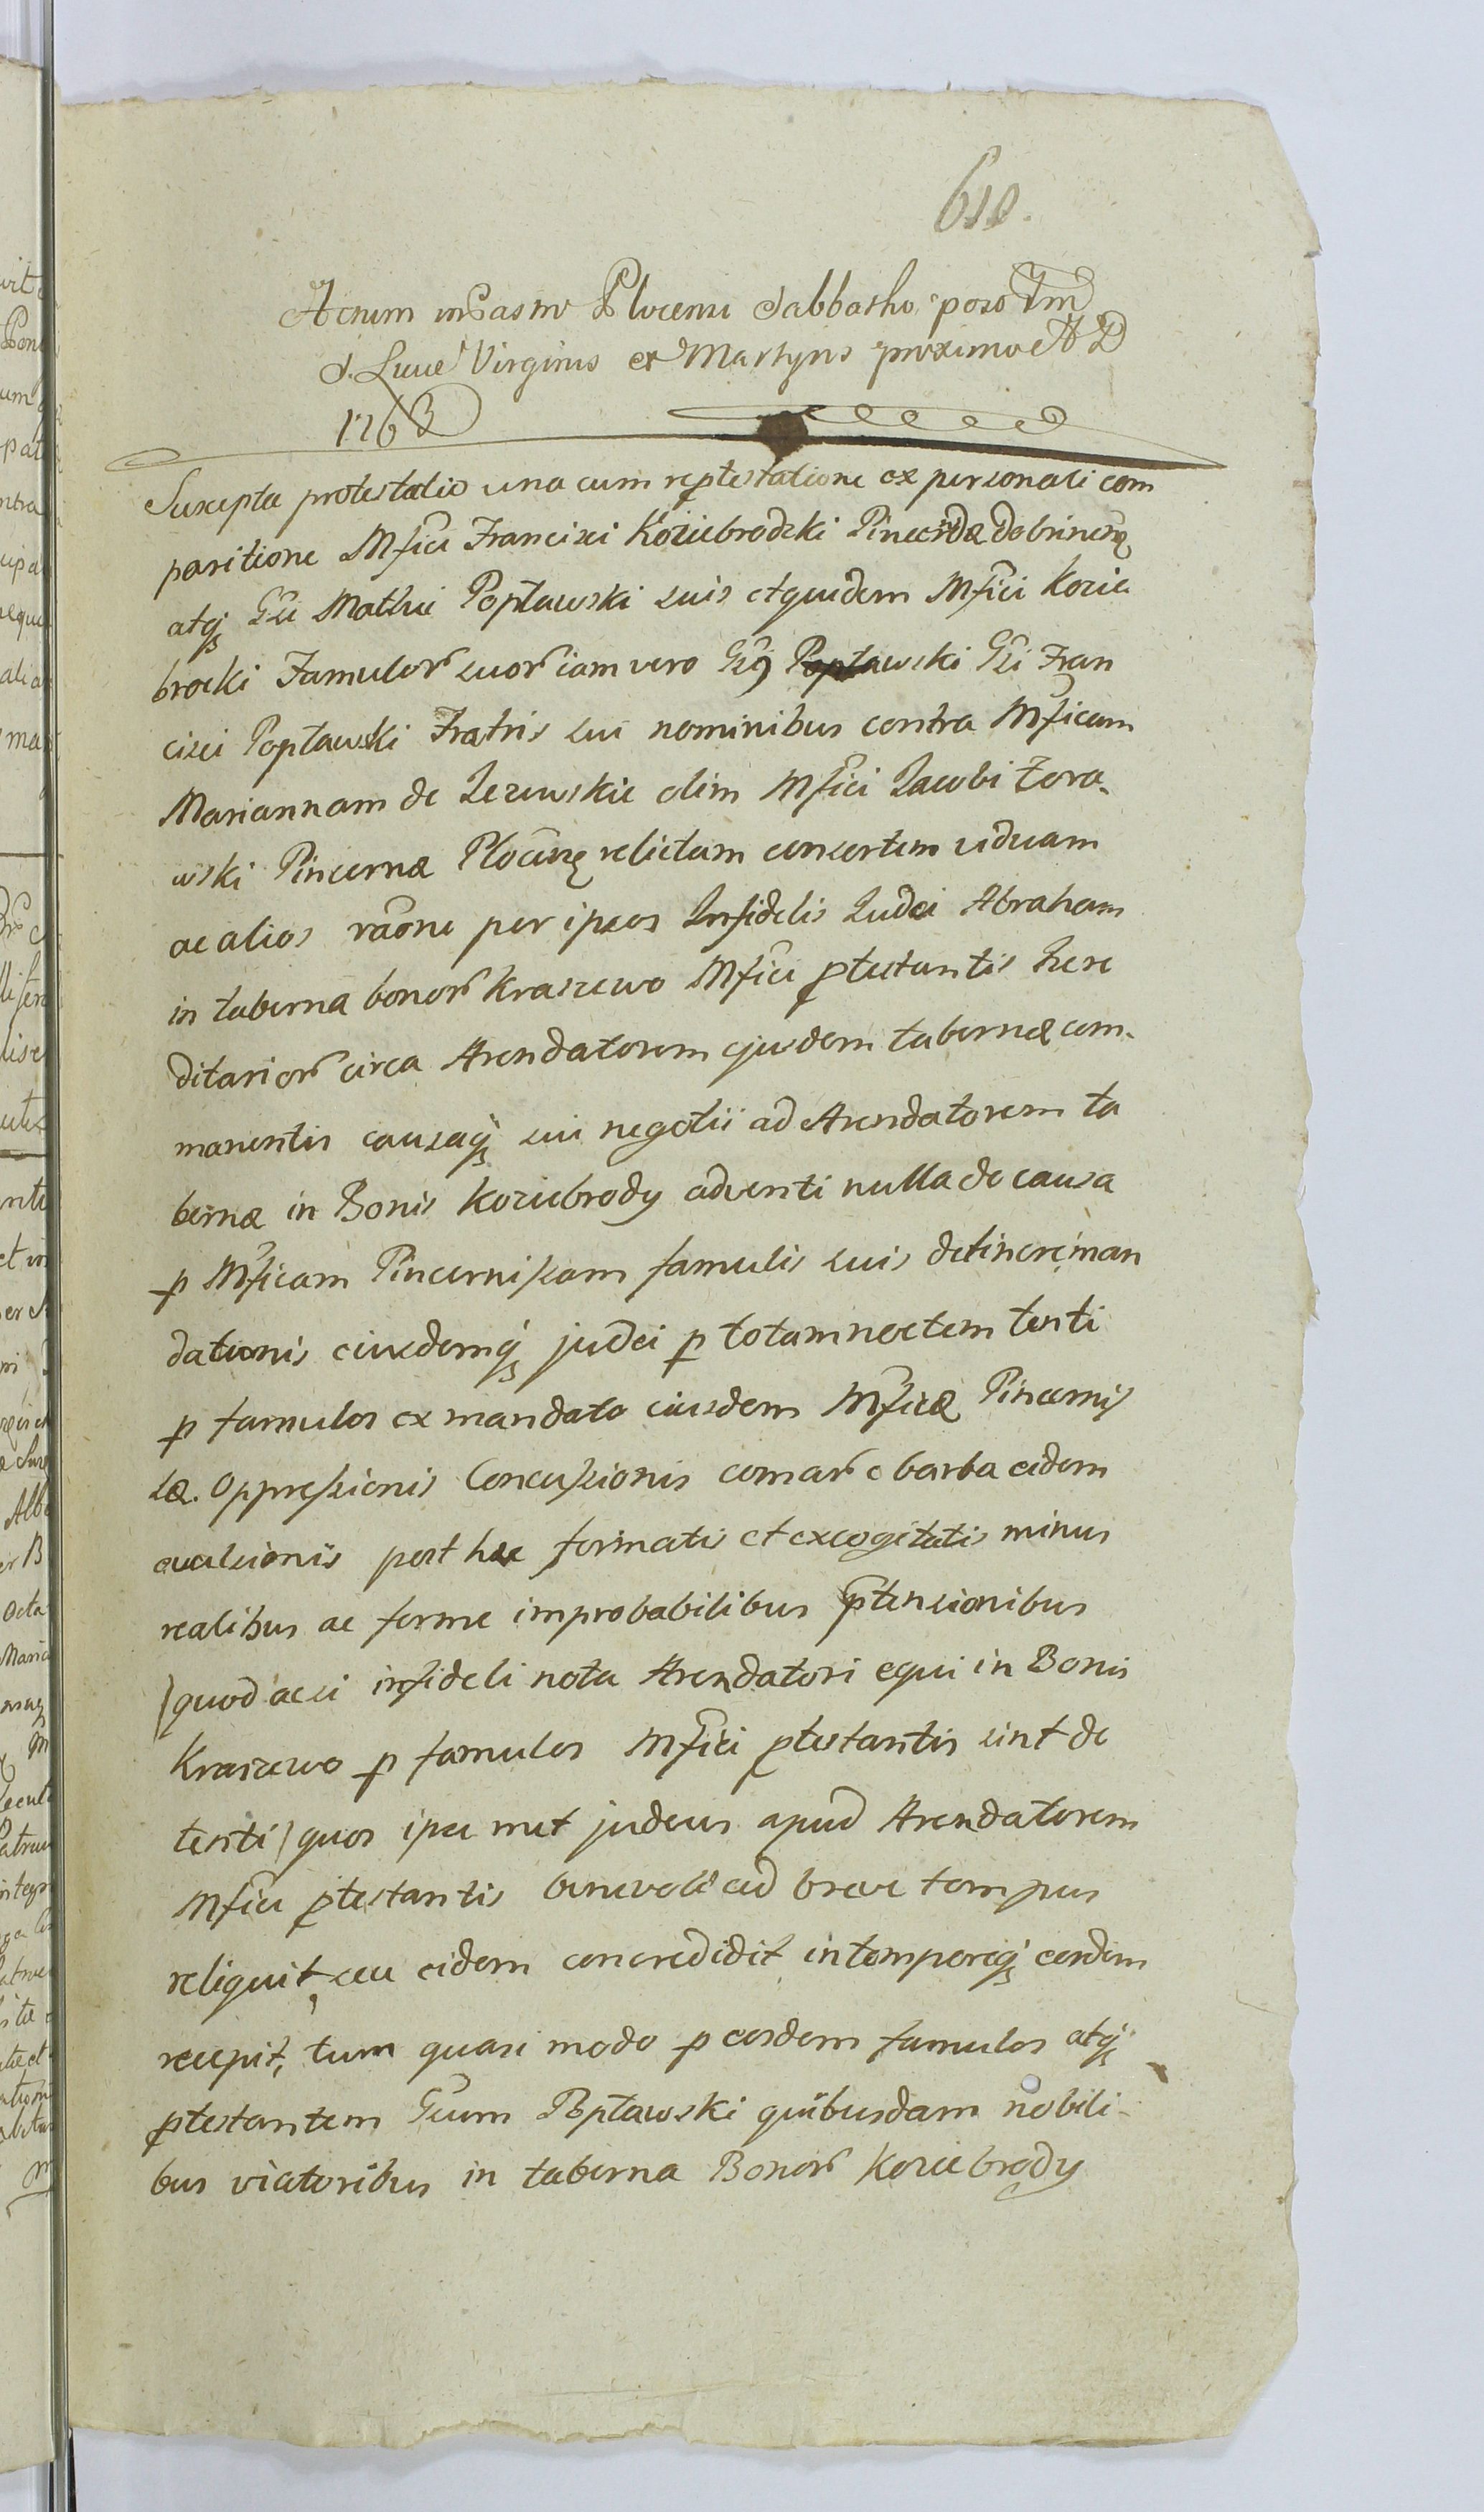 610.
Actum in Castro Plocensi Sabbatho post Fm
S. Luciæ Virginis et Martyris proximo A D
1763
Suscepta protestatio una cum reptestatione ex personali com
paritione Mfici Francisci Koziebrodzki Pincernæ Dobrinens
atq Gsi Mathei Popławski suis etquidem Mfici Kozie
brocki Famulor suor iam vero Gsi Popławski Gsi Fran
cisci Popławski Fratris sui nominibus contra Mficam
Mariannam de Jezewskie olim Mfici Jacobi Zora-
wski Pincernæ Plocens relictam consortem viduam
ac alios raone per ipsos Infidelis Judei Abraham
in taberna bonor Kraszewo Mfici ptestantis here
ditarior circa Arendatorem ejusdem tabernæ com-
manentis causaq sui negotii ad Arendatorem ta
bernæ in Bonis Koziebrody adventi nulla de causa
p Mficam Pincernissam famulis suis detinere man
dationis eiusdemq judei p totam noctem tenti
p famulos ex mandato eiusdem Mficæ Pincernis
sæ. Oppressionis Concussionis comar e barba eidem
avulsionis post hæc formatis et excogitatis minus
realibus ac forme improbabilibus ptensionibus
(quod acsi infideli nota Arendatori equi in Bonis
Kraszewo p famulos Mfici ptestantis sint de
tenti) quos ipse met judeus apud Arendatorem
Mfici ptestantis benevole ad breve tempus
reliquit, seu eidem concredidit in temporeq eosdem
recepit, tum quasi modo p eosdem famulos atq
ptestantem Gsum Popławski quibusdam nobili-
bus viatoribus in taberna Bonor Koziebrody